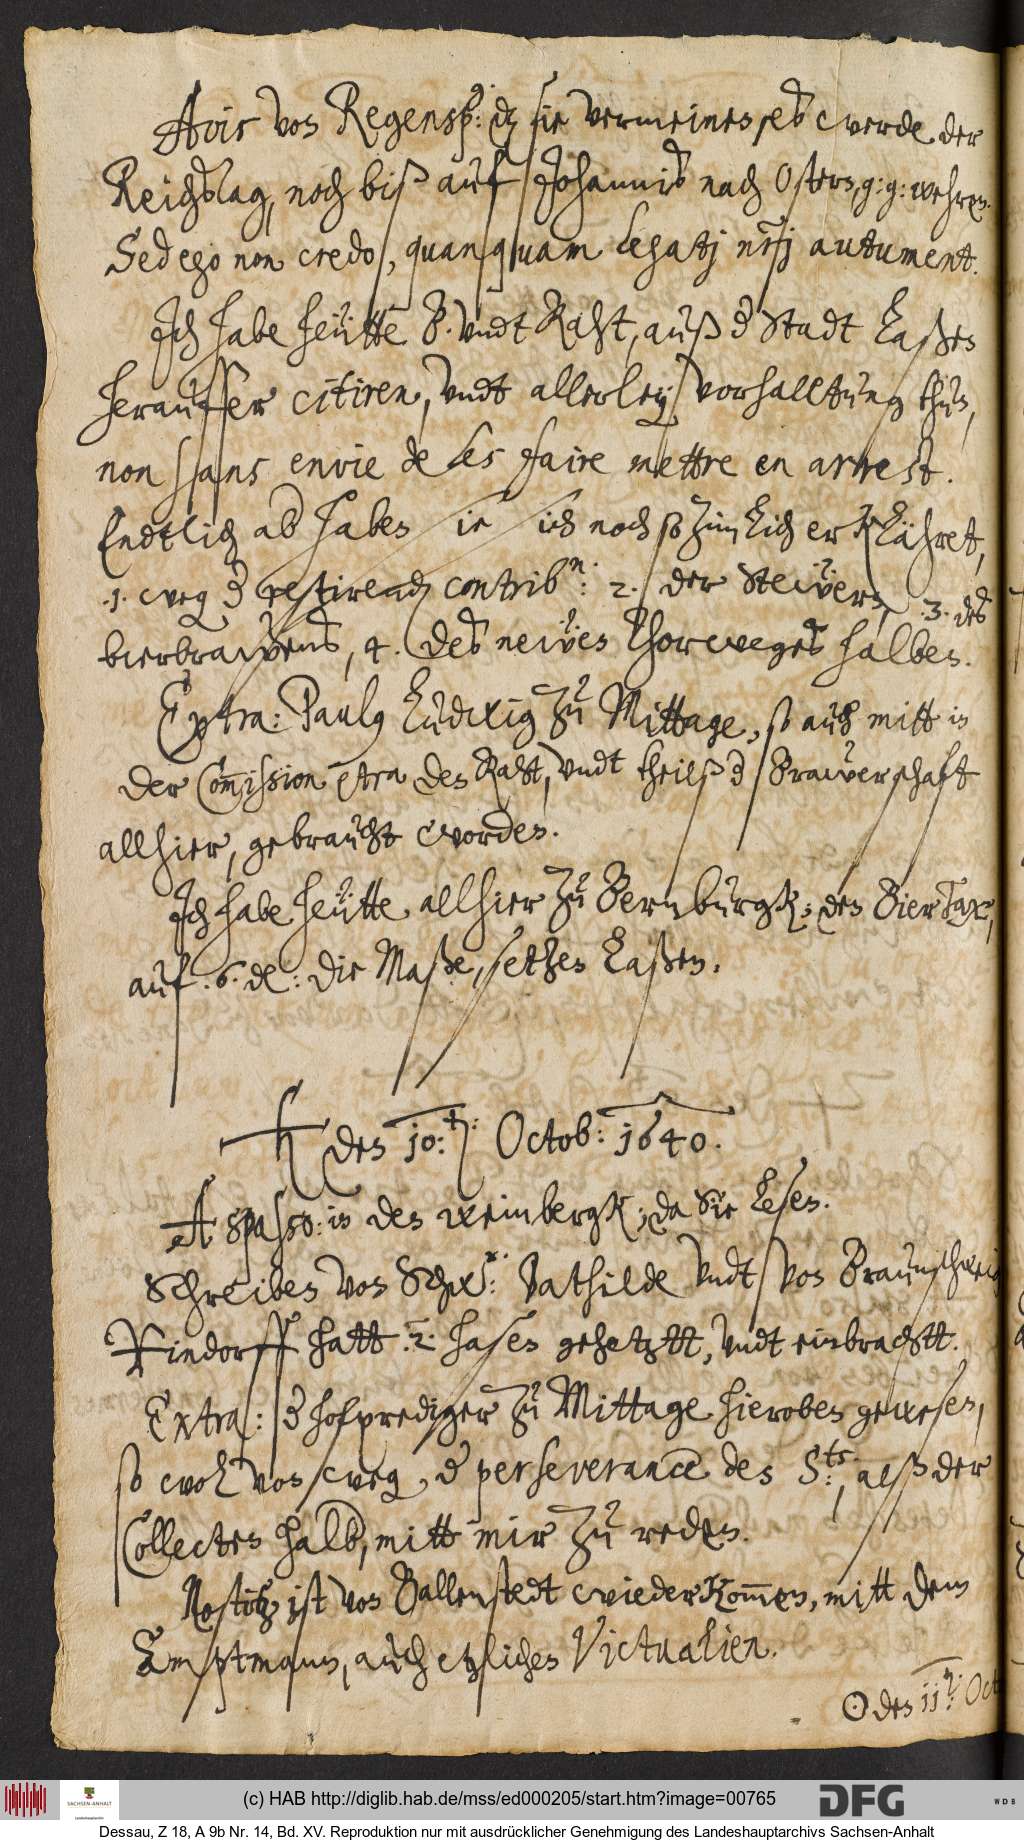 Avis von Regensp: dz sie vermeinen es werde der
Reichstag, noch biß auf Johannis nach Ostern, g: g: wehren.
Sed ego non credo, quanquam Legatj nrj autument.
Ich habe heütte B. vndt Raht, auß d Stadt laßen
herauffer citiren, vndt allerley vorhalltung thun,
non sans envie de les faire mettre en arrest.
Endtlich ab haben sie sich noch so zimlich erklähret,
.1. weg d restirenden contribn: 2. der Steẅern, .3. des
bierbraẅens, 4. des neẅen Thorweges halben.
Extra: Paulg Ludwig zu Mittage, so auch mitt in
der Com̄ission c͠tra den Raht, vndt theilß d Braẅerschaft
allhier, gebraucht worden.
Ich habe heütte allhier zu Bernburgk, den Bier Tax,
auf .6. de: die Maße, setzen laßen.
♄ den 10:t: Octob: 1640.
A spasso: in den weinbergk, da Sie lesen.
Schreiben von Schwr: Bathilde vndt von Braunschweig
Rindorff hatt .2. hasen gehetztt, vndt einbrachtt.
Extra: d hofprediger zu Mittage hieroben gewesen,
so wol von weg d perseverance des S:ts:, alß der
Collecten halb, mitt mir zu reden.
Nostitz ist von Ballenstedt wiederkom̄en, mitt dem
Amptmann, auch etzlichen Victualien.
☉ den 11:t: Oct
(c) HAB http://diglib.hab.de/mss/ed000205/start.htm?image=00765
SACHSEN-ANHALT
DFG
WDB
Dessau, Z 18, A 9b Nr. 14, Bd. XV. Reproduktion nur mit ausdrücklicher Genehmigung des Landeshauptarchivs Sachsen-Anhalt